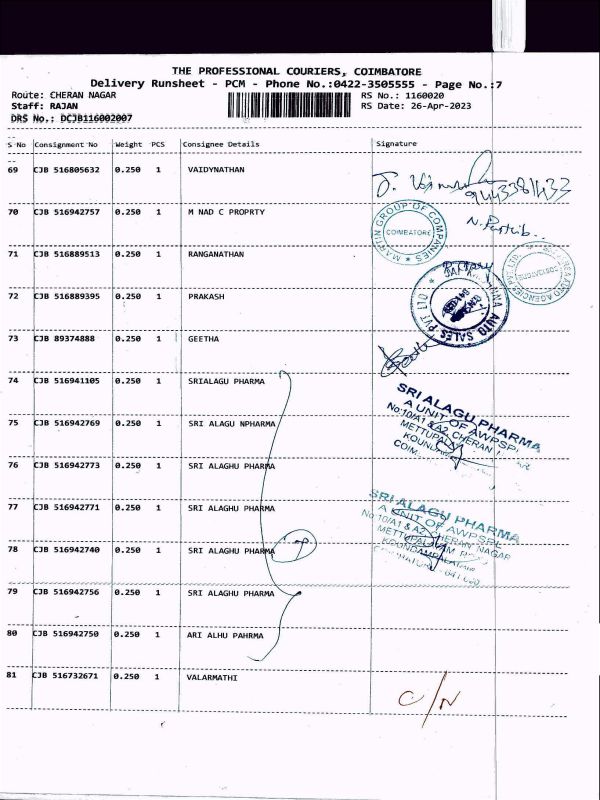 THE PROFESSIONAL COURIERS, COIMBATORE
Delivery Runsheet - PCM - Phone No.:0422-3505555 - Page No.:7
Route: CHERAN NAGAR RS No.: 1160020
Staff: RAJAN RS Date: 26-Apr-2023
DRS No.: DCJB116002007
S No Consignment No Weight PCS Consignee Details Signature
69 CJB 516805632 0.250 1 VAIDYNATHAN
9443381433
70 CJB 516942757 0.250 1 M NAD C PROPRTY
MARTIN GROUP OF COMPANIES
COIMBATORE
71 CJB 516889513 0.250 1 RANGANATHAN
72 CJB 516889395 0.250 1 PRAKASH
AUTO SALES PVT LTD
73 CJB 89374888 0.250 1 GEETHA
74 CJB 516941105 0.250 1 SRIALAGU PHARMA
SRI ALAGU PHARMA
A UNIT OF AWPSPL
No:10/A1 & A2, CHERAN
75 CJB 516942769 0.250 1 SRI ALAGU NPHARMA
76 CJB 516942773 0.250 1 SRI ALAGHU PHARMA
77 CJB 516942771 0.250 1 SRI ALAGHU PHARMA
SRI ALAGU PHARMA
A UNIT OF AWPSPL
No:10/A1 & A2, CHERAN NAGAR
78 CJB 516942740 0.250 1 SRI ALAGHU PHARMA
79 CJB 516942756 0.250 1 SRI ALAGHU PHARMA
80 CJB 516942750 0.250 1 ARI ALHU PAHRMA
81 CJB 516732671 0.250 1 VALARMATHI
C/N